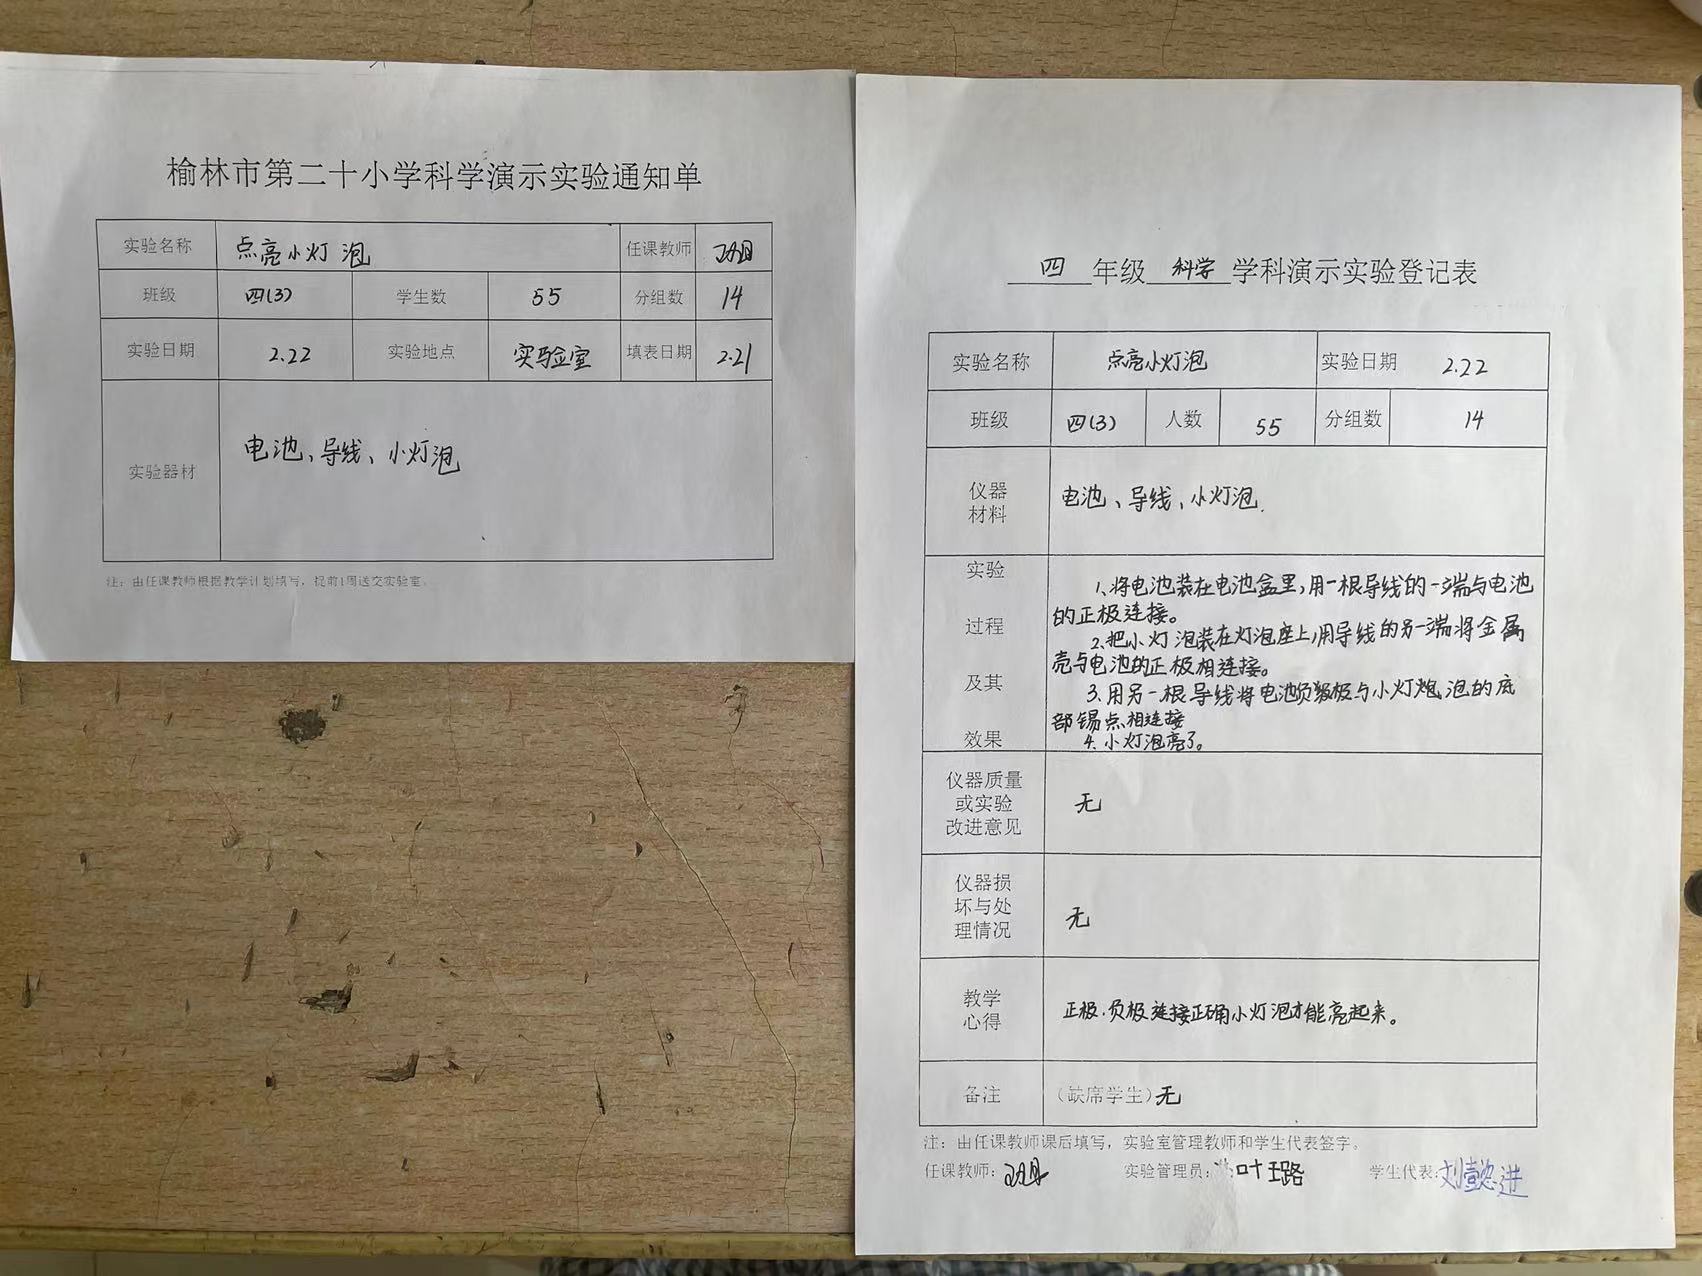 榆林市第二十小学科学演示实验通知单
实验名称 点亮小灯泡 任课教师
班级 四(3) 学生数 55 分组数 14
实验日期 2.22 实验地点 实验室 填表日期 2.21
实验器材 电池、导线、小灯泡
注：由任课教师根据教学计划填写，提前1周送交实验室。
四 年级 科学 学科演示实验登记表
实验名称 点亮小灯泡 实验日期 2.22
班级 四(3) 人数 55 分组数 14
仪器
材料
电池、导线、小灯泡.
实验
过程
及其
效果
1、将电池装在电池盒里，用一根导线的一端与电池
的正极连接。
2、把小灯泡装在灯泡座上，用导线的另一端将金属
壳与电池的正极相连接。
3、用另一根导线将电池负极与小灯泡的底
部锡点相连接
4、小灯泡亮了。
仪器质量
或实验
改进意见
无
仪器损
坏与处
理情况
无
教学
心得
正极、负极连接正确小灯泡才能亮起来。
备注 （缺席学生）无
注：由任课教师课后填写，实验室管理教师和学生代表签字。
任课教师： 实验管理员： 学生代表：